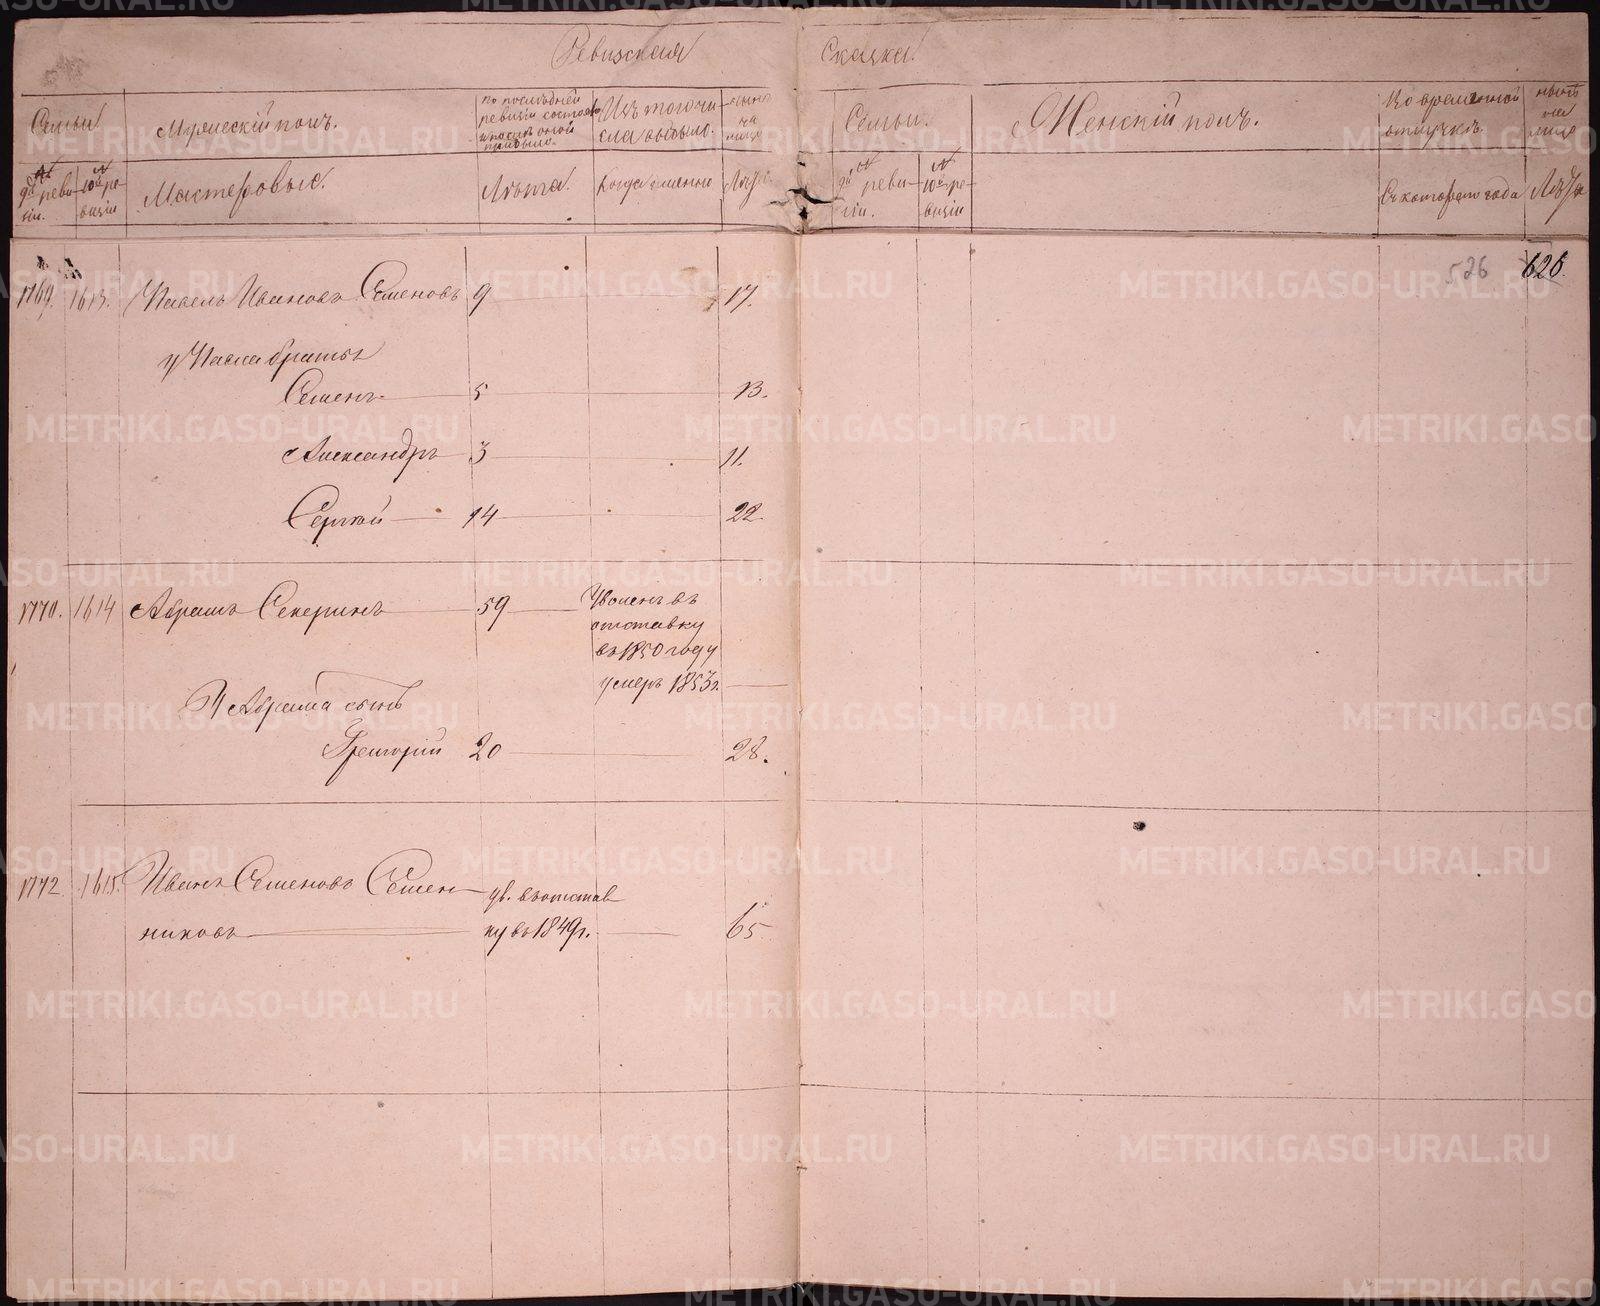 Ревизская Сказка.
Семьи
Мужескій полъ.
по последней
ревизіи состояло
и после оной
прибыло.
Изъ того чи-
сла выбыло.
ныне
на
лицо
Семьи.
Женскій полъ.
Во временной
отлучкѣ.
ныне
на
лицо
№
9й реви-
зіи.
№
10й ре-
визіи
Мастеровые.
Лѣта.
Когда именно
Лѣта.
№
9й реви-
зіи.
№
10й ре-
визіи
Съ котораго года
Лѣта
526 626.
1769. 1613. Павелъ Ивановъ Семеновъ 9 17.
у Павла братья
Семенъ 5 13.
Александръ 3 11.
Сергѣй 14 22.
1770. 1614 Абрамъ Секеринъ 59 Уволенъ въ
отставку
въ 1850 году
умеръ 1853г.
У Абрама сынъ
Григорій 20 28.
1772 1615. Иванъ Семеновъ Семен-
никовъ
ув. въ отстав
ку въ 1849г.
65
METRIKI.GASO-URAL.RU